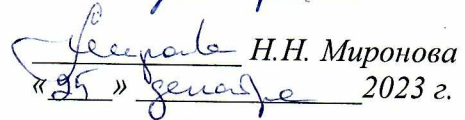 Н.Н. Миронова
«25» декабря 2023 г.